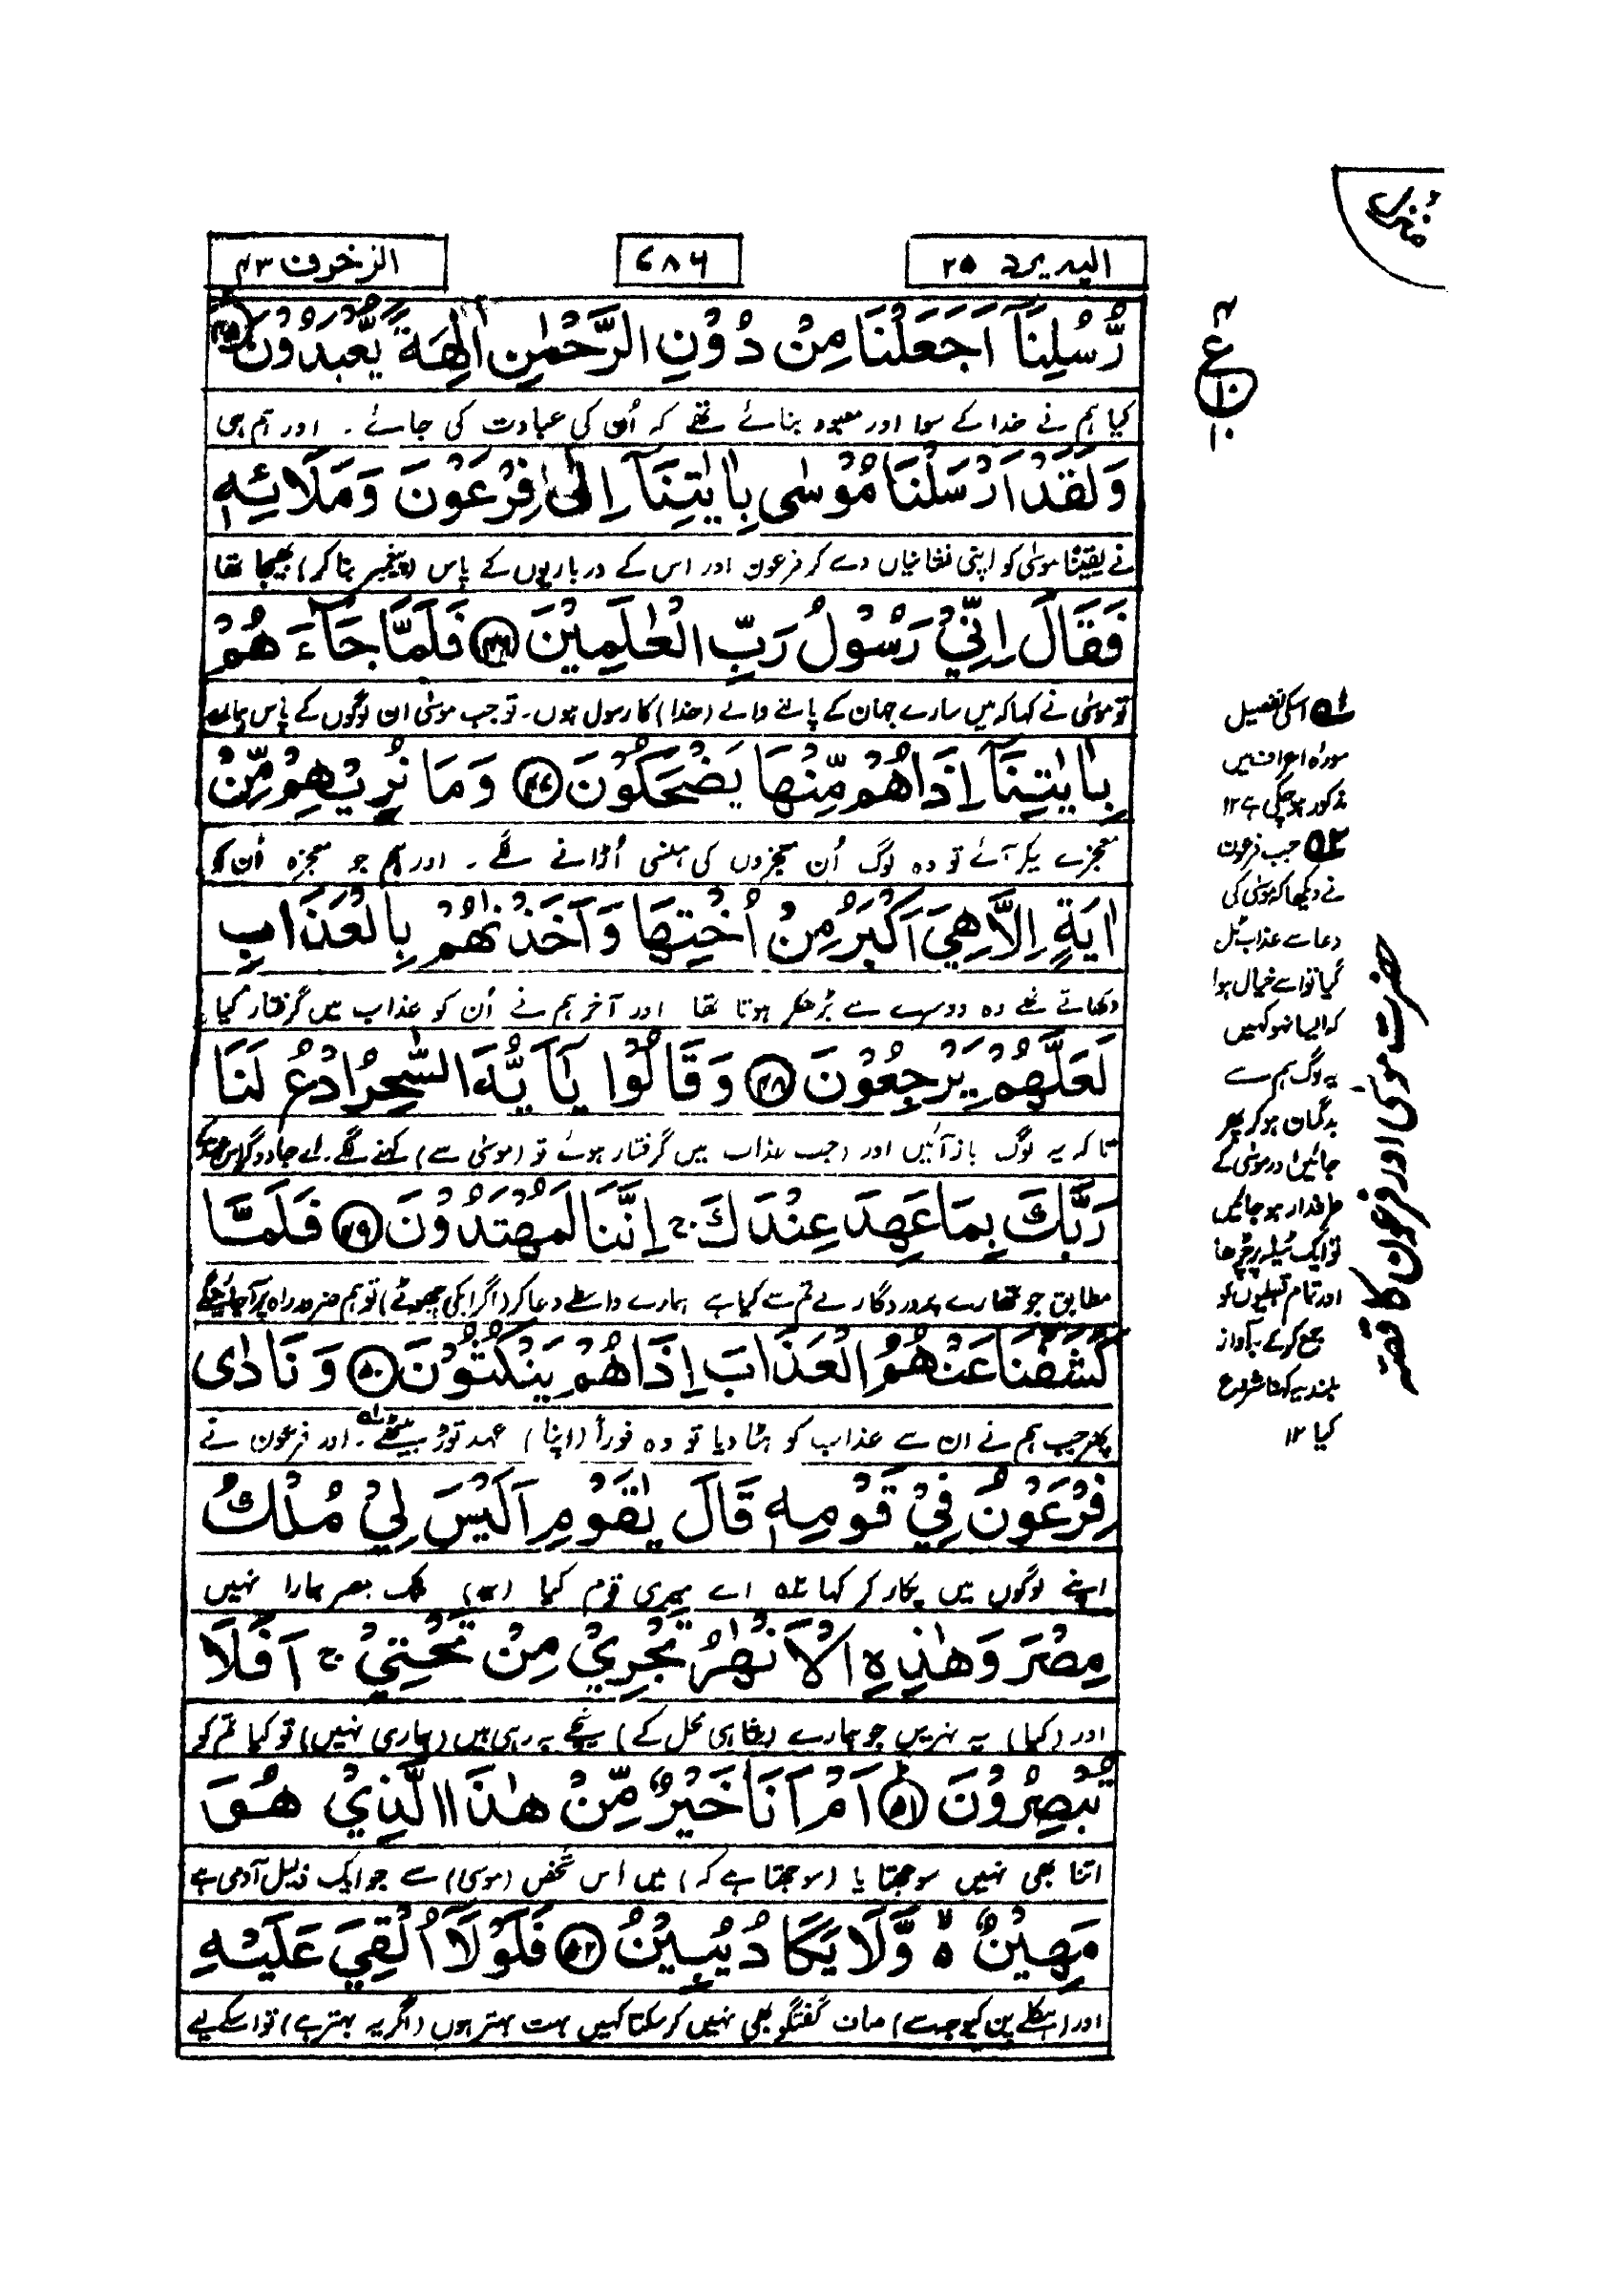 الیہ یرد ۲۵
۷۸۶
الزخرف ۴۳
رُّسُلِنَآ اَجَعَلْنَا مِنْ دُوْنِ الرَّحْمٰنِ اٰلِهَةً يُّعْبَدُوْنَ ۴۵
کیا ہم نے خدا کے سوا اور معبود بنائے تھے کہ اُن کی عبادت کی جائے ۔ اور ہم ہی
وَلَقَدْ اَرْسَلْنَا مُوْسٰى بِاٰيٰتِنَآ اِلٰى فِرْعَوْنَ وَمَلَائِهٖ
نے یقینًا موسیٰ کو اپنی نشانیاں دے کر فرعون اور اس کے درباریوں کے پاس (پیغمبر بنا کر) بھیجا تھا
فَقَالَ اِنِّيْ رَسُوْلُ رَبِّ الْعٰلَمِيْنَ ۴۶ فَلَمَّا جَآءَ هُمْ
تو موسیٰ نے کہا کہ میں سارے جہان کے پالنے والے (خدا) کا رسول ہوں ۔ تو جب موسیٰ ان لوگوں کے پاس ہمارے
بِاٰيٰتِنَآ اِذَا هُمْ مِّنْهَا يَضْحَكُوْنَ ۴۷ وَمَا نُرِيْهِمْ مِّنْ
معجزے لیکر آئے تو وہ لوگ اُن معجزوں کی ہنسی اُڑانے لگے ۔ اور ہم جو معجزہ اُن کو
اٰيَةٍ اِلَّا هِيَ اَكْبَرُ مِنْ اُخْتِهَا وَاَخَذْنٰهُمْ بِالْعَذَابِ
دکھاتے تھے وہ دوسرے سے بڑھکر ہوتا تھا اور آخر ہم نے اُن کو عذاب میں گرفتار کیا
لَعَلَّهُمْ يَرْجِعُوْنَ ۴۸ وَقَالُوْا يٰٓاَيُّهَ السّٰحِرُ ادْعُ لَنَا
تا کہ یہ لوگ باز آئیں اور (جب عذاب میں گرفتار ہوئے تو (موسیٰ سے) کہنے لگے ۔ اے جادوگر اس عہد کے
رَبَّكَ بِمَا عَهِدَ عِنْدَكَ ج اِنَّنَا لَمُهْتَدُوْنَ ۴۹ فَلَمَّا
مطابق جو تمھارے پروردگار نے تم سے کیا ہے ہمارے واسطے دعا کر (اگر ابکی چھوٹے) تو ہم ضرور راہ پر آجائینگے
كَشَفْنَا عَنْهُمُ الْعَذَابَ اِذَا هُمْ يَنْكُثُوْنَ ۵۰ وَنَادٰى
پھر جب ہم نے ان سے عذاب کو ہٹا دیا تو وہ فورًا (اپنا) عہد توڑ بیٹھے ۵۱ ۔ اور فرعون نے
فِرْعَوْنُ فِيْ قَوْمِهٖ قَالَ يٰقَوْمِ اَلَيْسَ لِيْ مُلْكُ
اپنے لوگوں میں پکار کر کہا ۵۲ اے میری قوم کیا (یہ) ملک مصر ہمارا نہیں
مِصْرَ وَهٰذِهِ الْاَنْهٰرُ تَجْرِيْ مِنْ تَحْتِيْ ج اَفَلَا
اور (کیا) یہ نہریں جو ہمارے (شاہی محل کے) نیچے بہ رہی ہیں (ہماری نہیں) تو کیا تم کو
تُبْصِرُوْنَ ۵۱ اَمْ اَنَا خَيْرٌ مِّنْ هٰذَا الَّذِيْ هُوَ
اتنا بھی نہیں سوجھتا یا (سوجھتا ہے کہ) میں اس شخص (موسیٰ) سے جو ایک ذلیل آدمی ہے
مَهِيْنٌ ۵ وَّلَا يَكَادُ يُبِيْنُ ۵۲ فَلَوْلَآ اُلْقِيَ عَلَيْهِ
اور (ہکلے پن کیوجہ سے) صاف گفتگو بھی نہیں کر سکتا کہیں بہت بہتر ہوں (اگر یہ بہتر ہے) تو اسکے لیے
۴
ع
۱۰
۱۰
۵۱ اسکی تفصیل
سورہ اعراف میں
مذکور ہوچکی ہے ۱۲
۵۲ جب فرعون
نے دیکھا کہ موسیٰ کی
دعا سے عذاب ٹل
گیا تو اسے خیال ہوا
کہ ایسا نہو کہیں
یہ لوگ ہم سے
بدگمان ہو کر پھر
جائیں اور موسیٰ کے
طرفدار ہو جائیں
تو ایک ٹیلہ پر چڑھا
اور تمام قبطیوں کو
جمع کر کے بآواز
بلند یہ کہنا شروع
کیا ۱۲
حضرت موسیٰ اور فرعون کا قصہ